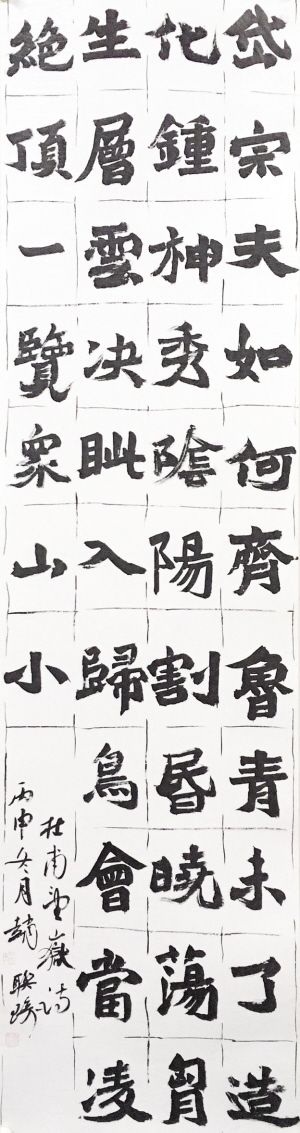 岱宗夫如何齊魯青未了造
化鍾神秀陰陽割昏曉蕩胷
生層雲決眦入歸鳥會當凌
絕頂一覽衆山小
杜甫望嶽詩
丙申冬月